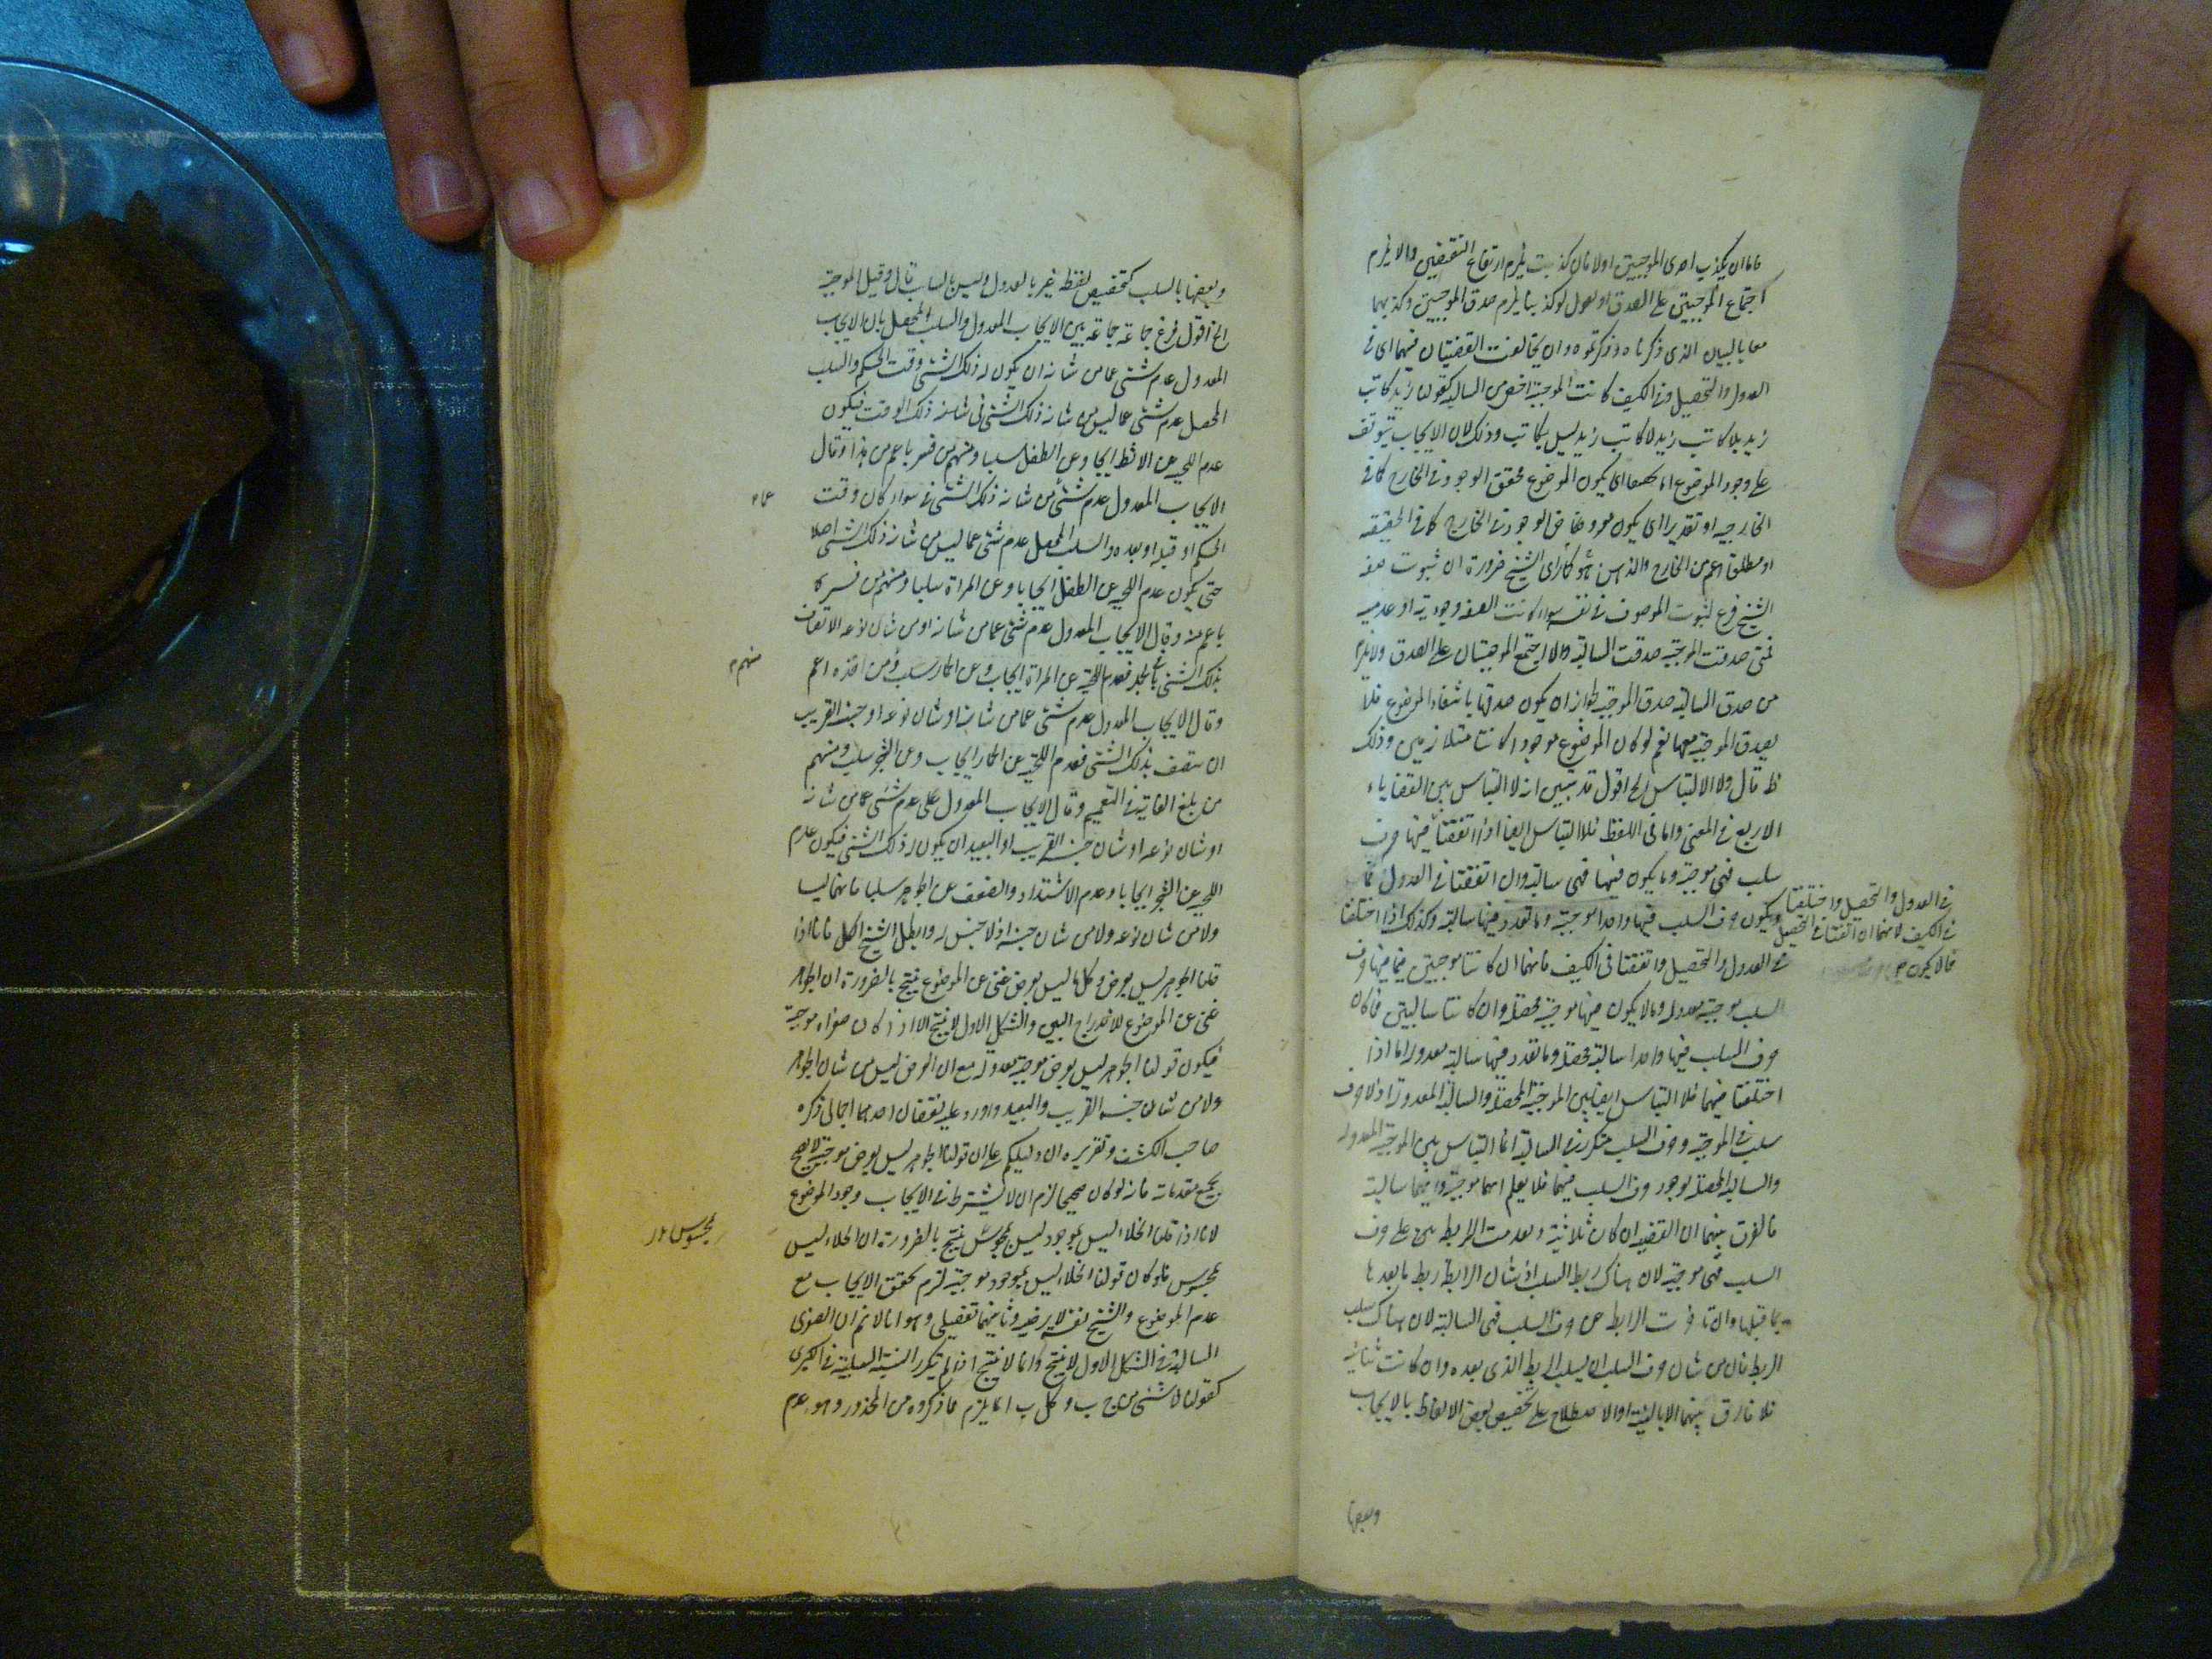 فاما ان يكذب احدى الموجبتين اولا فان كذبت يلزم ارتفاع النقيضين والا يلزم
اجتماع الموجبتين على الصدق او نقول لو كذبتا يلزم صدق الموجبتين وكذبهما
معا بالبيان الذى ذكرناه وذكرتموه وان تخالفت القضيتان فيهما اى فى
العدول والتحصيل وفى الكيف كانت الموجبة اخص من السالبة كقولنا زيد كاتب
زيد بلا كاتب زيد لا كاتب زيد ليس بكاتب وذلك لان الايجاب يتوقف
على وجود الموضوع اما محققا اى يكون الموضوع محقق الوجود فى الخارج كما فى
الخارجيه او تقديرا اى يكون مفروض الوجود فى الخارج كما فى الحقيقيه
او مطلقا اعم من الخارج والذهن كما هو راى الشيخ ضرورة ان ثبوت صفه
الشيئ فرع لثبوت الموصوف فى نفسه سواء كانت الصفه وجودية او عدميه
فمتى صدقت الموجبة صدقت السالبة والا اجتمع الموجبتان على الصدق ولا يلزم
من صدق السالبة صدق الموجبة لجواز ان يكون صدقها بانتفاء الموضوع فلا
يصدق الموجبة معها نعم لو كان الموضوع موجودا كانتا متلازمين وذلك
ظ قال ولا الالتباس الخ اقول قد تبين انه لا التباس بين القضاياء
الاربع فى المعنى واما فى اللفظ فلا التباس ايضا اذا اتفقتا فيها حرف
سلب فهى موجبة وما يكون فيها فهى سالبة وان اتفقتا فى العدول فما
فى العدول والتحصيل واختلفتا
فى الكيف لانهما ان اتفقتا فى التحصيل
فما لا يكون
يكون حرف السلب فيها واحدا موجبة وما تعدد فيها سالبة وكذلك اذا اختلفتا
فى العدول والتحصيل واتفقتا فى الكيف فانهما ان كانتا موجبتين فما فيها حرف
السلب موجبة معدوله وما لا يكون فيها موجبة محصلة وان كانتا سالبتين فما كان
حرف السلب فيها واحدا سالبة محصلة وما تعدد فيها سالبة معدولة اما اذا
اختلفتا فيهما فلا التباس ايضا بين الموجبة المحصلة والسالبة المعدولة اذ لا حرف
سلب فى الموجبة وحرف السلب متكرر فى السالبة انما التباس بين الموجبة المعدوله
والسالبة المحصلة لوجود حرف السلب فيهما فلا يعلم ايهما موجبة وايهما سالبة
فالفرق بينهما ان القضية ان كان ثلاثية وتقدمت الرابطه على حرف
السلب فهى موجبة لان هناك ربط السلب اذ شان الرابطة ربط ما بعدها
بما قبلها وان تاخرت الرابط عن حرف السلب فهى السالبة لان هناك سلب
الربط فان من شان حرف السلب ان يسلب الربط الذى بعده وان كانت ثنائية
فلا فارق بينهما الا بالنية او الاصطلاح على تخصيص بعض الالفاظ بالايجاب
وبعضها
وبعضها بالسلب كتخصيص لفظة غير بالعدول وليس بالسلب قال وقيل الموجبة
الخ اقول فرع جماعة بين الايجاب المعدول والسلب المحصل بان الايجاب
المعدول عدم شئى عما من شانه ان يكون له ذلك الشئى وقت الحكم والسلب
المحصل عدم شئى عما ليس من شانه ذلك الشئى فى ذلك الوقت فيكون
عدم اللحية عن الاثط ايجابا وعن الطفل سلبا ومنهم من فسر باعم من هذا وقال
الايجاب المعدول عدم شئى من شانه ذلك الشئى سواء كان وقت
عما
الحكم او قبله او بعده والسلب المحصل عدم شئى عما ليس من شانه ذلك الشئى اصلا
حتى يكون عدم اللحية عن الطفل ايجابا وعن المراة سلبا ومنهم من فسر
باعم منه وقال الايجاب المعدول عدم شئى عما من شانه او من شان نوعه الاتصاف
بذلك الشئى فعدم اللحية عن المراة ايجاب وعن الحمار سلب ومن اخذه اعم
منهم
وقال الايجاب المعدول عدم شئى عما من شانه او شان نوعه او جنسه القريب
ان يتصف بذلك الشئى فعدم اللحية عن الحمار ايجاب وعن الشجر سلب ومنهم
من بلغ الغاية فى التعميم وقال الايجاب المعدول على عدم شئى عما من شانه
او شان نوعه او شان جنسه القريب او البعيد ان يكون له ذلك الشئى فيكون عدم
اللحية عن الشجر ايجابا وعدم الاشتداد والضعف عن الجوهر سلبا فانهما ليسا
ولا من شان نوعه ولا من شان جنسه اذ لا جنس له وابطل الشيخ الكل فانا اذا
قلنا الجوهر ليس بعرض وكل ما ليس بعرض غنى عن الموضوع ينتج بالضرورة ان الجوهر
غنى عن الموضوع للاندراج البين والشكل الاول لا ينتج الا اذا كان صغراه موجبة
فيكون قولنا الجوهر ليس بعرض موجبة معدولة مع ان العرض ليس من شان الجوهر
ولا من شان جنسه القريب والبعيد واورد عليه نقضان احدهما اجمالى ذكره
صاحب الكشف وتقريره ان دليلكم على ان قولنا الجوهر ليس بعرض موجبة لا يصح
بجميع مقدماته فانه لو كان صحيحا لزم ان لا يشترط فى الايجاب وجود الموضوع
لانا اذا قلنا الخلاء ليس بموجود ليس بمحسوس ينتج بالضرورة ان الخلاء ليس
بمحسوس
بمحسوس فلو كان قولنا الخلاء ليس بموجود موجبة لزم تحقق الايجاب مع
عدم الموضوع والشيخ نفسه لا يرضيه وثانيهما تفصيلى وهو انا لانم ان الصغرى
السالبة فى الشكل الاول لا ينتج وانما لا ينتج اذا لم يتكرر النسبة السلبية فى الكبرى
كقولنا لا شئى من ج ب وكل ب ا يلزم ما ذكروه من المحذور وهو عدم